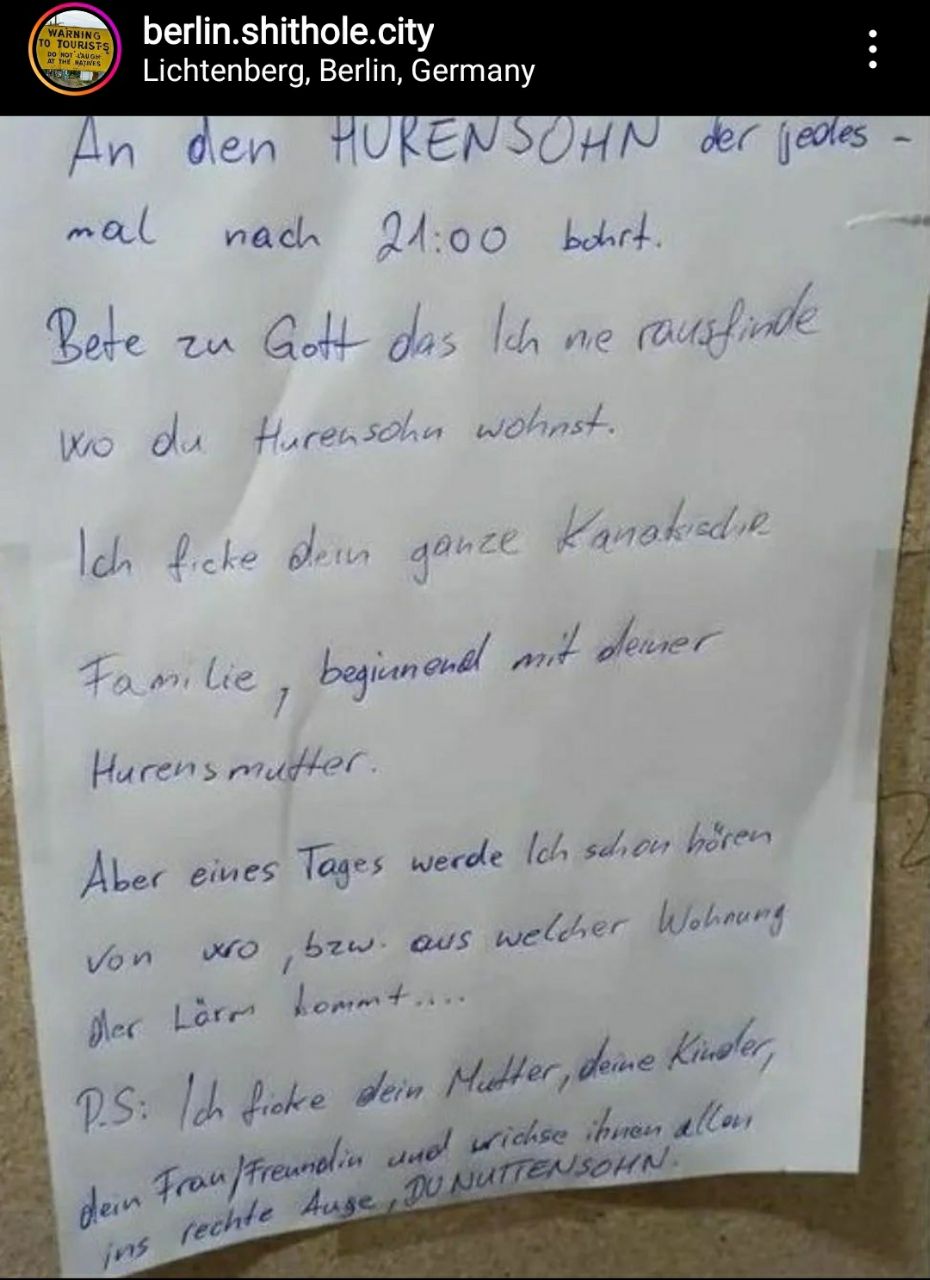 WARNING
TO TOURISTS
DO NOT LAUGH
AT THE NATIVES
berlin.shithole.city
Lichtenberg, Berlin, Germany
An den HURENSOHN der jedes-
mal nach 21:00 bohrt.
Bete zu Gott das Ich nie rausfinde
wo du Hurensohn wohnst.
Ich ficke dein ganze Kanakische
Familie, beginnend mit deiner
Hurensmutter.
Aber eines Tages werde Ich schon hören
von wo, bzw. aus welcher Wohnung
der Lärm kommt....
P.S: Ich ficke dein Mutter, deine Kinder,
dein Frau/Freundin und wichse ihnen allen
ins rechte Auge, DU NUTTENSOHN.